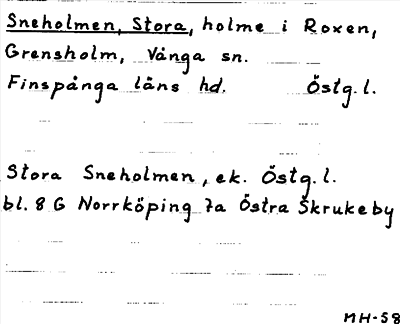 Sneholmen, Stora, holme i Roxen,
Grensholm, Vånga sn.
Finspånga läns hd. Östg. l.
Stora Sneholmen, ek. Östg. l.
bl. 8 G Norrköping 7a Östra Skrukeby
MH-58